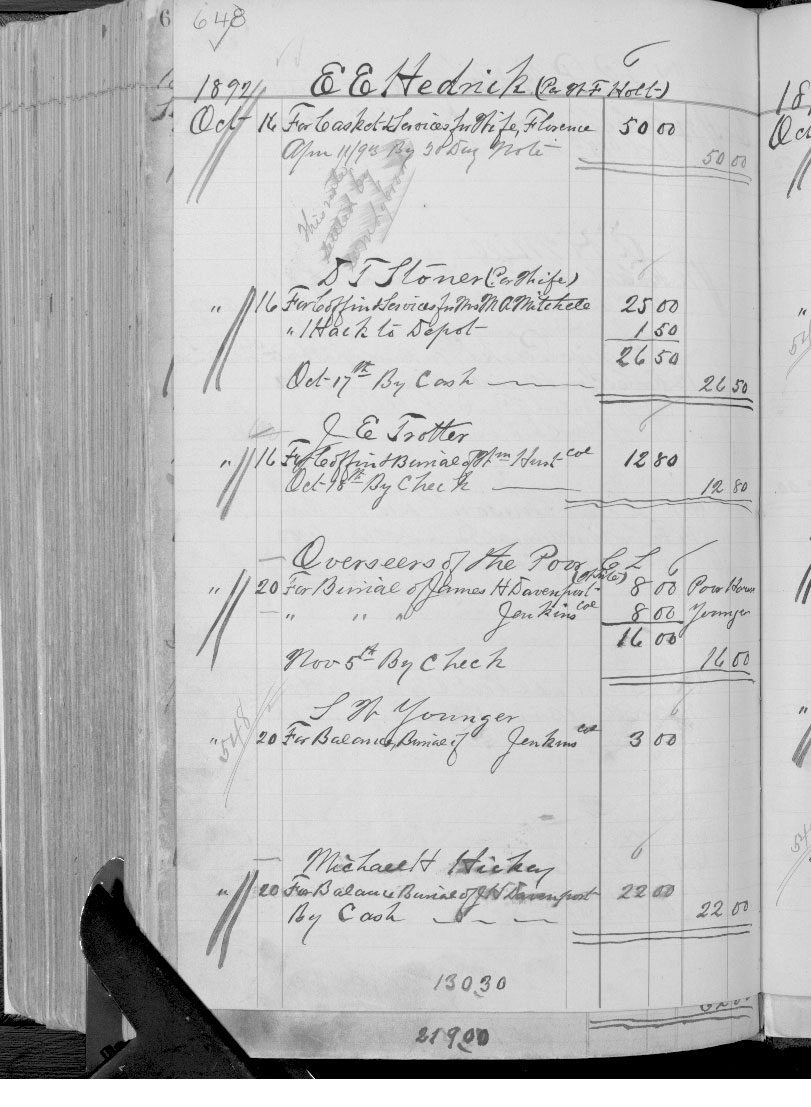 6 648
1892 E E Hedrick (Per W F Holt) 6
Oct 16 For Casket & Services for Wife, Florence 50 00
Apr 11/93 By 30 Day Note 50 00
This note
settled by
D T Stoner (Per Wife)
" 16 For Coffin & Services for Mrs M A Mitchell 25 00
" 1 Hack to Depot 1 50
26 50
Oct 17th By Cash 26 50
J E Trotter
" 16 For Coffin & Burial of Wm Hunt col 12 80
Oct 18th By Check 12 80
Overseers of the Poor C L 6
" 20 For Burial of James H Davenport (White) 8 00 Poor House
" " " Jenkins col 8 00 Younger
16 00
Nov 5th By Check 16 00
S W Younger
548
" 20 For Balance, Burial of Jenkins col 3 00
Michael H Hickey 6
" 20 For Balance Burial of J H Davenport 22 00
By Cash 22 00
130 30
219 00
18
Oct
"
"